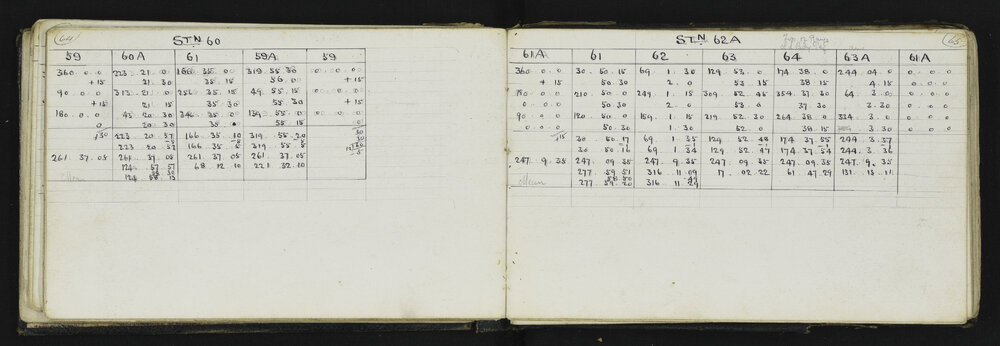 64
STN 60
59 60A 61 59A 59
360 0 0 223.. 21.. 0 166.. 35.. 0 319.. 55.. 30 0 0 0
+ 15 21.. 30 35.. 15 56.. 0 + 15
90.. 0.. 0 313.. 21.. 0 256.. 35.. 15 49.. 55.. 15 0 0 0
+ 15 21.. 15 35.. 30 55.. 30 + 15
180.. 0.. 0 43.. 20.. 30 346.. 35.. 0 139.. 55.. 0 0.. 0.. 0
0 20.. 30 35.. 0 55.. 15 0
+30 223.. 20.. 57 166.. 35.. 10 319.. 55.. 20 30
223.. 20.. 52 166.. 35.. 5 319.. 55..
261.. 37.. 05 261.. 37.. 05 261.. 37.. 05 261.. 37.. 05
124.. 57.. 57 68.. 12.. 10 221.. 32.. 10
124.. 58.. 13
65
STN 62A
61A 61 62 63 64 63A 61A
360 0 0 30.. 50.. 15 69.. 1.. 30 129.. 53.. 0 174.. 38.. 0 244.. 04.. 0 0.. 0.. 0
+ 15 50.. 30 2.. 0 53.. 15 38.. 15 4.. 15 0.. 0.. 0
180.. 0.. 0 210.. 50.. 0 249.. 1.. 15 309.. 52.. 45 354.. 37.. 30 64.. 3.. 0 0.. 0.. 0
0.. 0.. 0 50.. 30 2.. 0 53.. 0 37.. 30 3.. 30 0.. 0.. 0
90.. 0.. 0 120.. 50.. 0 159.. 1.. 15 219.. 52.. 30 264.. 38.. 0 334.. 3.. 0 0.. 0.. 0
0.. 0.. 0 50.. 30 1.. 30 52.. 0 38.. 15 3.. 30 0.. 0.. 0
+15 30.. 50.. 17 69.. 1.. 35 129.. 52.. 48 174.. 37.. 55 244.. 3.. 37
30.. 50.. 16 69.. 1.. 34 129.. 52.. 47 174.. 37.. 54 244.. 3.. 36
247.. 9.. 35 247.. 09.. 35 247.. 9.. 35 247.. 09.. 35 247.. 09.. 35 247.. 9.. 35
Mean 277.. 59.. 51 316.. 11.. 09 17.. 02.. 22 61.. 47.. 29 131.. 13.. 11
277.. 59.. 20 316.. 11.. 29